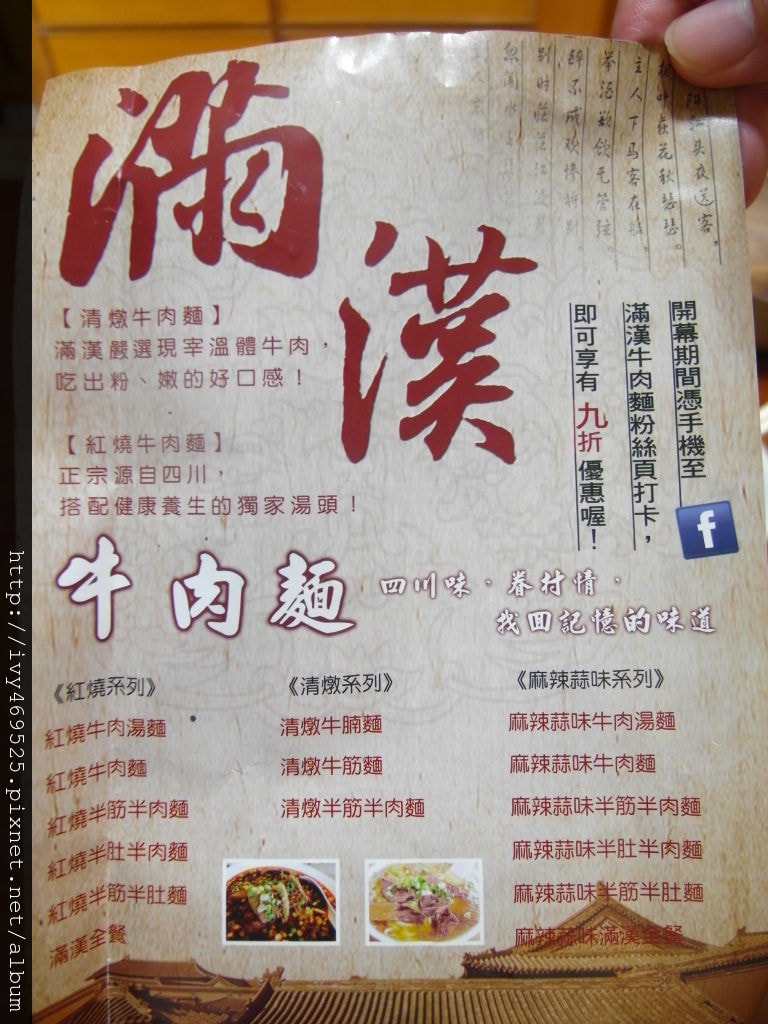 滿漢
【清燉牛肉麵】
滿漢嚴選現宰溫體牛肉，
吃出粉、嫩的好口感！
【紅燒牛肉麵】
正宗源自四川，
搭配健康養生的獨家湯頭！
主人下马客在船，
举酒欲饮无管弦。
醉不成欢惨将别
别时茫茫江浸月
開幕期間憑手機至
f
滿漢牛肉麵粉絲頁打卡，
即可享有 九折 優惠喔！
牛肉麵
四川味．眷村情，
找回記憶的味道
《紅燒系列》
紅燒牛肉湯麵
紅燒牛肉麵
紅燒半筋半肉麵
紅燒半肚半肉麵
紅燒半筋半肚麵
滿漢全餐
《清燉系列》
清燉牛腩麵
清燉牛筋麵
清燉半筋半肉麵
《麻辣蒜味系列》
麻辣蒜味牛肉湯麵
麻辣蒜味牛肉麵
麻辣蒜味半筋半肉麵
麻辣蒜味半肚半肉麵
麻辣蒜味半筋半肚麵
麻辣蒜味滿漢全餐
http://ivy469525.pixnet.net/album